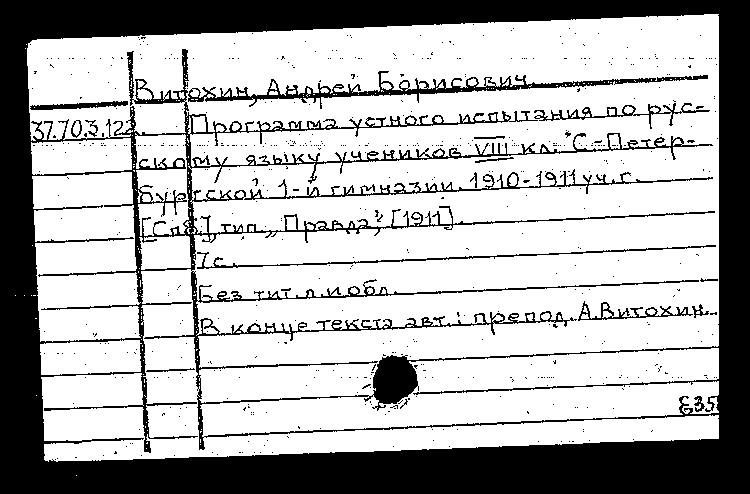 Витохин, Андрей Борисович.
37.70.3.122. Программа устного испытания по рус-
скому языку учеников VIII кл. С.-Петер-
бургской 1-й гимназии. 1910-1911 уч. г.
[Спб.], тип. „Правда“, [1911].
7 с.
Без тит. л. и обл.
В конце текста авт.: препод. А. Витохин.